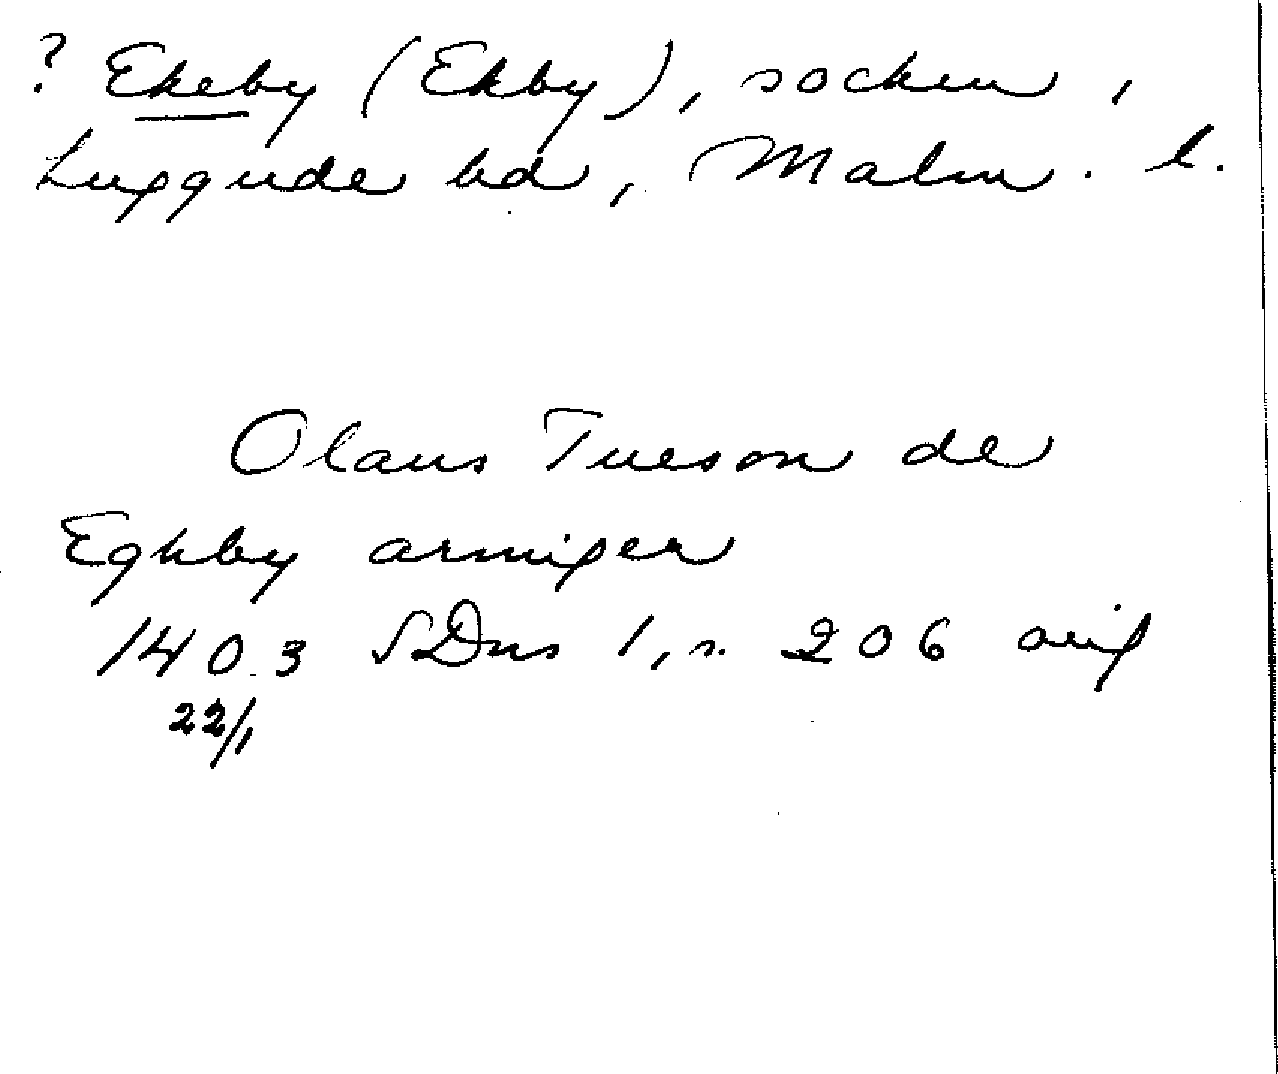 ? Ekeby (Ekby), socken,
Luggude hd, Malm. l.
Olaus Tueson de
Eghby armiger
1403 SDns 1, s. 206 orig
22/1